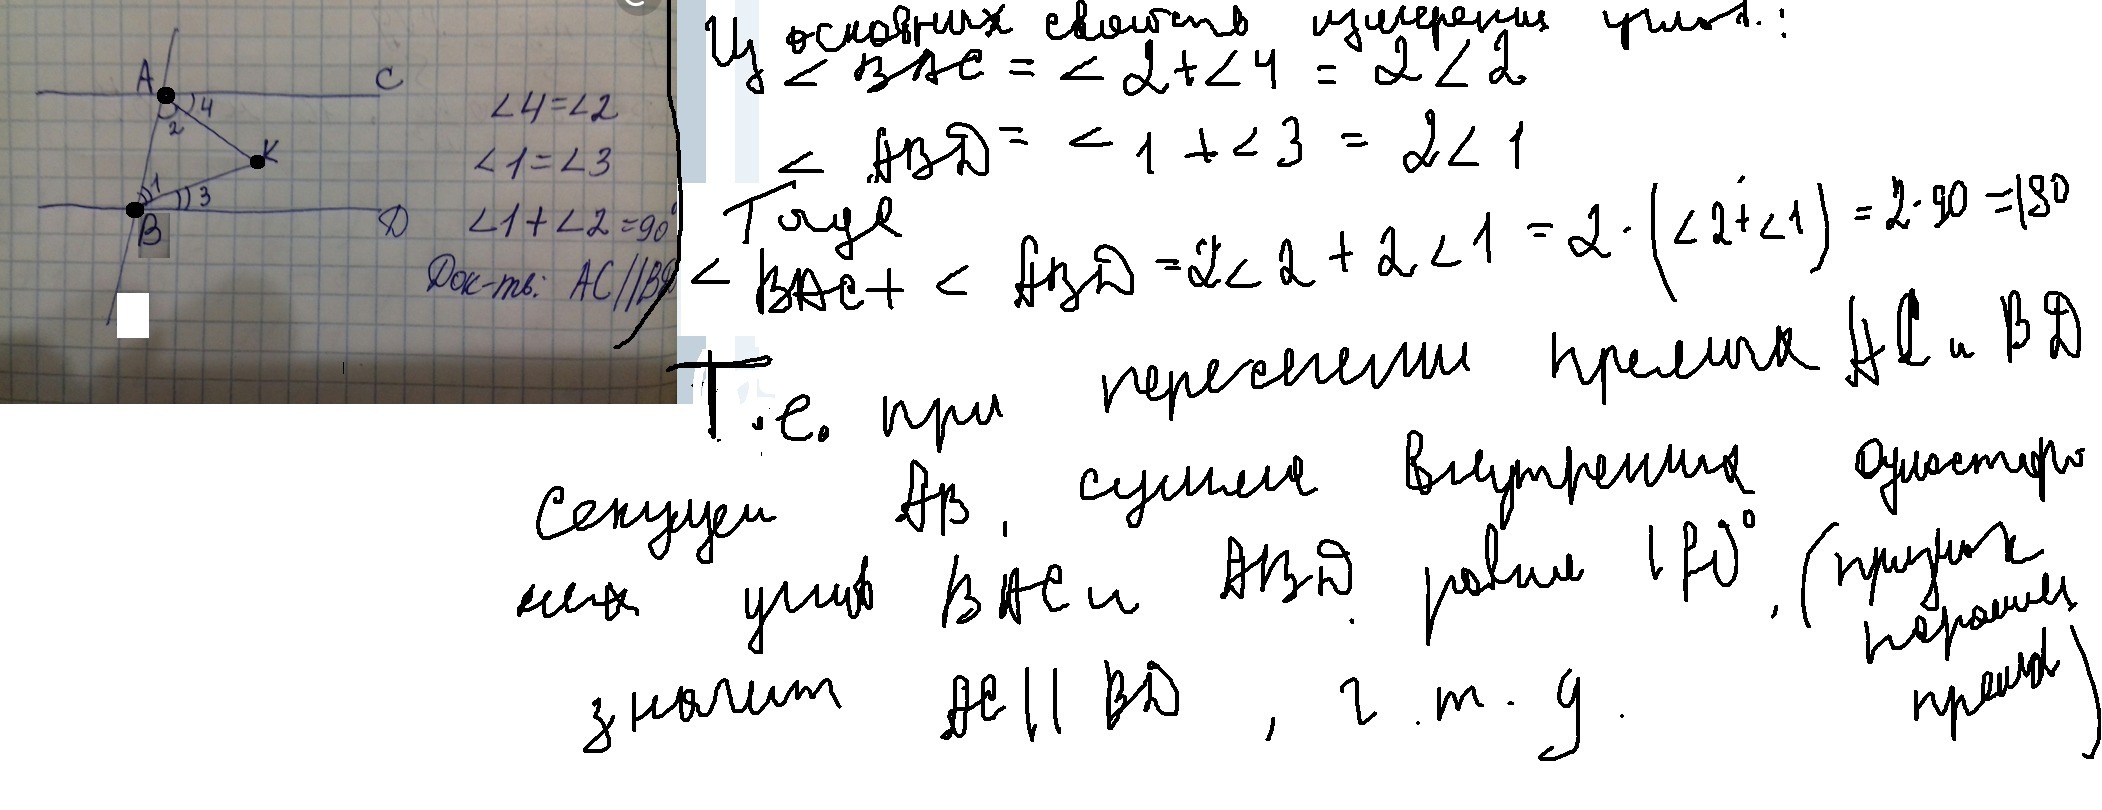 A
C
4
2
K
1
3
B
D
∠4=∠2
∠1=∠3
∠1+∠2=90°
Док-ть: AC||BD
Из основных свойств измерения углов:
∠ BAC = ∠ 2+∠4 = 2∠2
∠ ABD = ∠ 1 + ∠ 3 = 2∠1
Тогда
∠ BAC + ∠ ABD = 2∠2 + 2∠1 = 2·(∠2+∠1) = 2·90 = 180
Т.е. при пересечении прямых AC и BD
секущей AB, сумма внутренних односторо-
них углов BAC и ABD равна 180°, (признак
паралл
прямых)
значит AC || BD, ч.т.д.